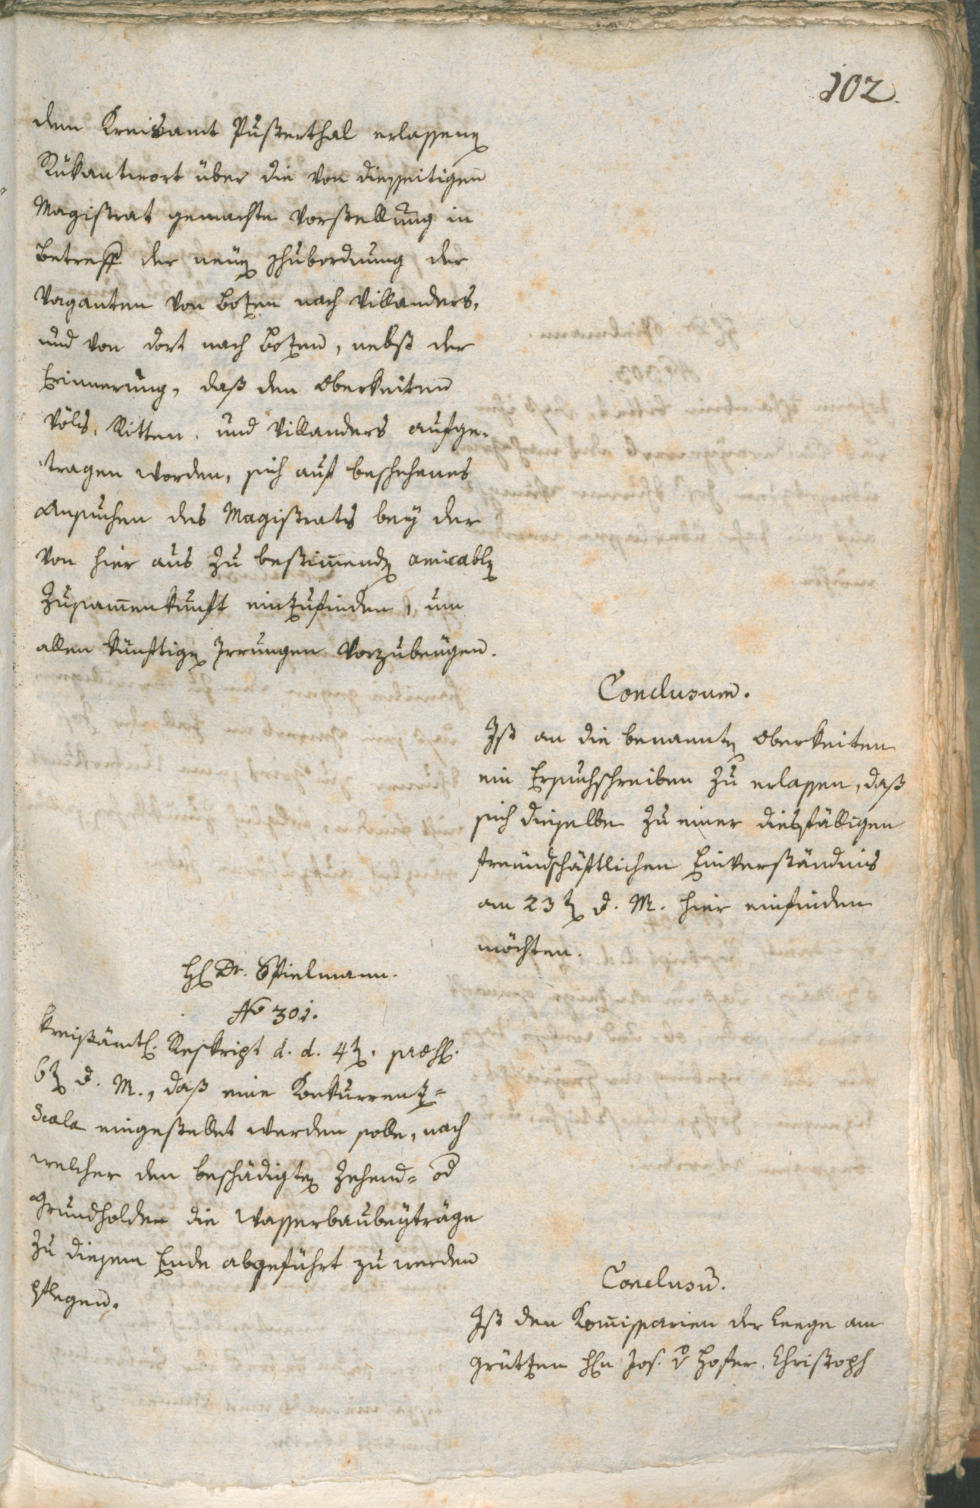 102.
dem Kreisamt Pusterthal erlassenen
Rükantwort über die von diesseitigen
Magistrat gemachte Vorstellung in
Betreff der neuen Schubordnung der
Vaganten von Botzen nach Villanders,
und von dort nach Botzen, nebst der
Erinnerung, daß den Oberkeiten
Völs, Ritten, und Villanders aufge-
tragen worden, sich auf beschehenes
Ansuchen des Magistrats bey der
von hier aus zu bestimmenden amicablen
Zusammenkunft einzufinden, um
allen künftigen Irrungen vorzubeugen.
Conclusum.
Ist an die benannten Oberkeiten
ein Ersuchschreiben zu erlassen, daß
sich dieselbe zu einer diesfälligen
freundschäftlichen Einverständnis
am 23ten d. M. hier einfinden
möchten.
H Dr. Spielmann.
No 301.
Kreisämtl. Reskript d. d. 4ten. praes.
6ten d. M., daß eine Konkurrenz-
Scala eingestellet werden solle, nach
welcher den beschädigten Zehend- od
Grundholden die Wasserbaubeyträge
zu diesem Ende abgeführt zu werden
pflegen.
Conclusum.
Ist den Kommissarien der Leege am
Grützen Hn Jos. v Hofer. Christoph